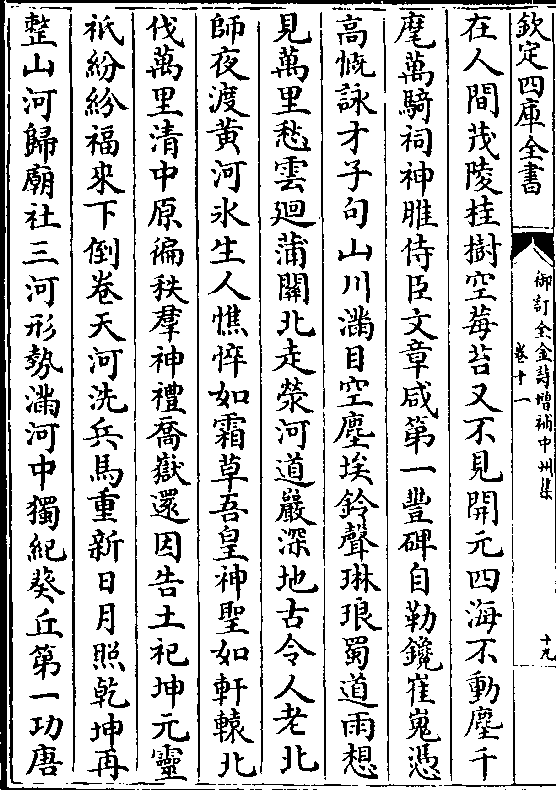 欽定四庫全書
御訂全金詩增補中州集
卷十一
十九
在人間茂陵桂樹空莓苔又不見開元四海不動塵千
麾萬騎祠神脽侍臣文章咸第一豐碑自勒鑱崔嵬憑
高慨詠才子句山川滿目空塵埃鈴聲琳琅蜀道雨想
見萬里愁雲迴蒲關北走滎河道嚴深地古令人老北
師夜渡黃河氷生人憔悴如霜草吾皇神聖如軒轅北
伐萬里清中原徧秩羣神禮喬嶽還因告土祀坤元靈
祇紛紛福來下倒卷天河洗兵馬重新日月照乾坤再
整山河歸廟社三河形勢滿河中獨紀葵丘第一功唐